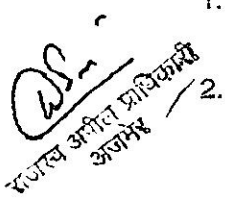 1.
राजस्व अपील प्राधिकारी
अजमेर
2.